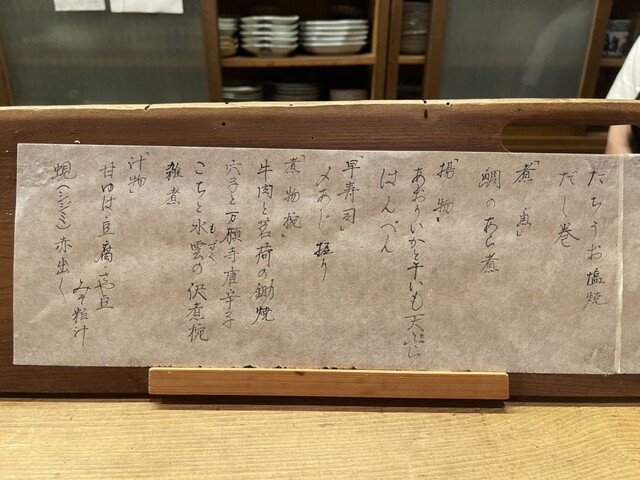 たちうお塩焼
だし巻
「煮魚」
鯛のあら煮
「揚物」
あおりいかと千いも天ぷら
はんぺん
「早寿司」
〆あじ握り
「煮物椀」
牛肉と茗荷の鋤焼
穴子と万願寺唐辛子
こちと水雲の沢煮椀
もずく
雑煮
「汁物」
甘ゆば豆腐
みそ粕汁
蜆(シジミ)赤出し